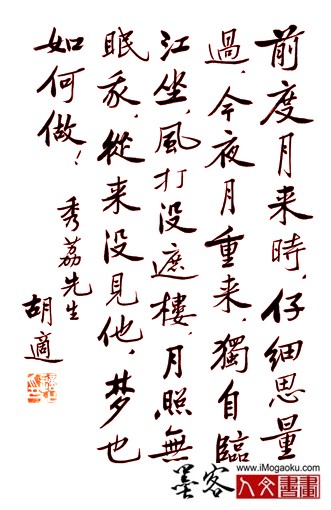 前度月来時，仔細思量
過，今夜月重来，獨自臨
江坐，風打没遮樓，月照無
眠我，從来没見他，梦也
如何做！
秀荔先生
胡適
墨客
www.iMogaoku.com
人文書畫